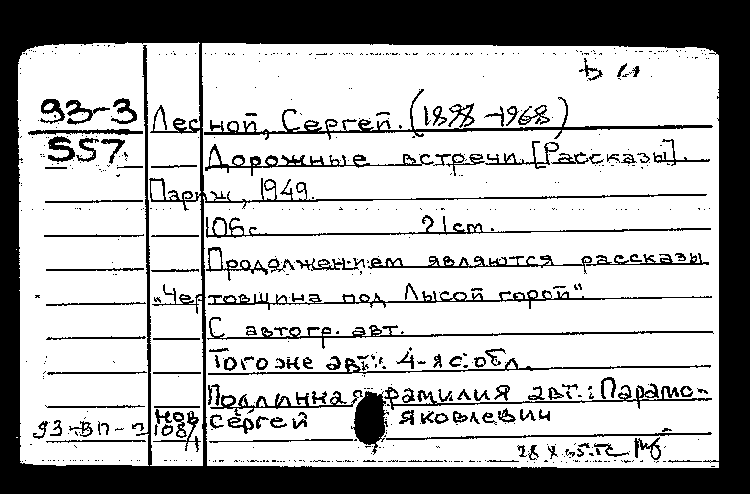 93-3
557
Лесной, Сергей. (1898-1968)
Дорожные встречи. [Рассказы].
Париж, 1949.
106с. 21 см.
Продолжением являются рассказы
„Чертовщина под Лысой горой".
С автогр. авт.
Того же авт.: 4-я с. обл.
Подлинная фамилия авт.: Парамо-
Сергей Яковлевич
93-ВП-3
нов
108/1